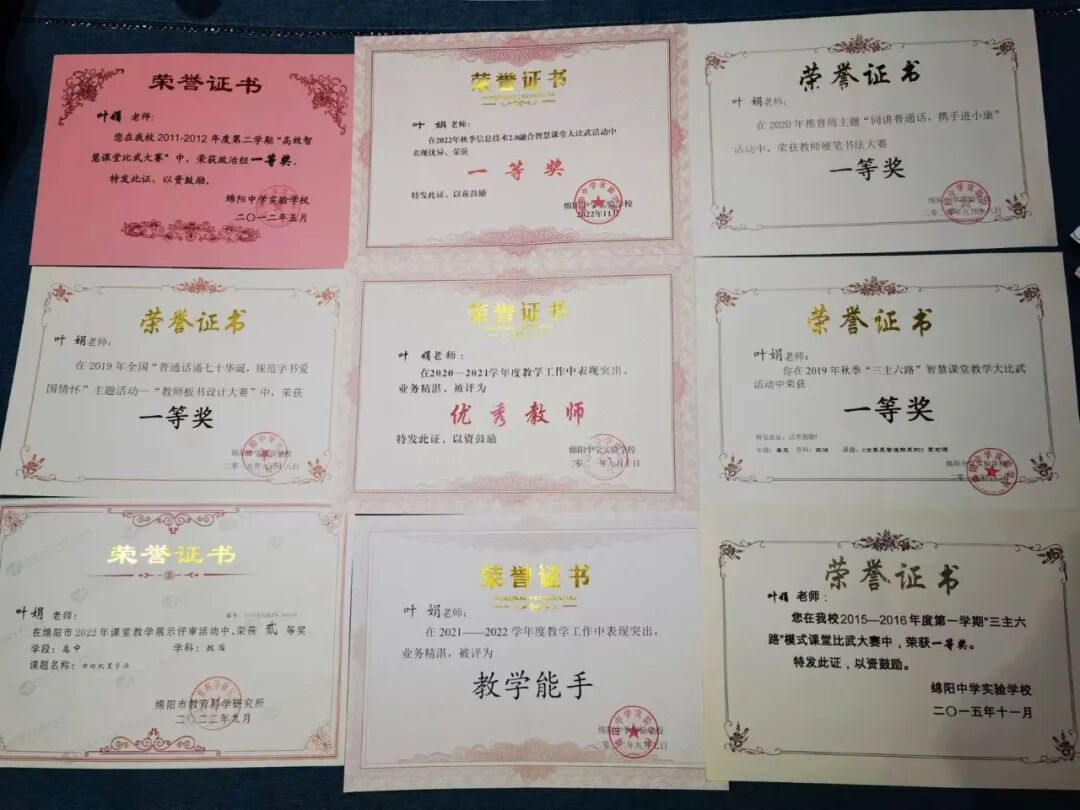 荣誉证书
叶娟 老师:
您在我校2011-2012年度第二学期“高效智
慧课堂比武大赛”中，荣获政治组一等奖，
特发此证，以资鼓励。
绵阳中学实验学校
二〇一二年五月
荣誉证书
叶 娟 老师:
在2022年秋季信息技术2.0融合智慧课堂大比武活动中
表现优异，荣获
一等奖
特发此证、以兹鼓励
绵阳中学实验学校
2022年11月
荣誉证书
叶娟老师:
在2020年推普周主题“同讲普通话，携手进小康”
活动中，荣获教师硬笔书法大赛
一等奖
绵阳中学实验学校
荣誉证书
叶 娟 老师:
在2019年全国“普通话诵七十华诞，规范字书爱
国情怀”主题活动—“教师板书设计大赛”中，荣获
一等奖
绵阳中学实验学校
荣誉证书
叶 娟老师:
在2020—2021学年度教学工作中表现突出，
业务精湛，被评为
优秀教师
特发此证、以资鼓励
绵阳中学实验学校
荣誉证书
叶娟老师:
你在2019年秋季“三主六路”智慧课堂教学大比武
活动中荣获
一等奖
特发此证，以资鼓励!
绵阳中学实验学校
荣誉证书
叶娟 老师:
在绵阳市2022年课堂教学展示评审活动中，荣获 贰 等奖
学段：高中 学科：政治
课题名称：市场配置资源
绵阳市教育科学研究所
二〇二二年九月
荣誉证书
叶 娟老师:
在2021——2022学年度教学工作中表现突出，
业务精湛，被评为
教学能手
绵阳中学实验学校
荣誉证书
叶娟 老师:
您在我校2015—2016年度第一学期“三主六
路”模式课堂比武大赛中，荣获一等奖。
特发此证，以资鼓励。
绵阳中学实验学校
二〇一五年十一月